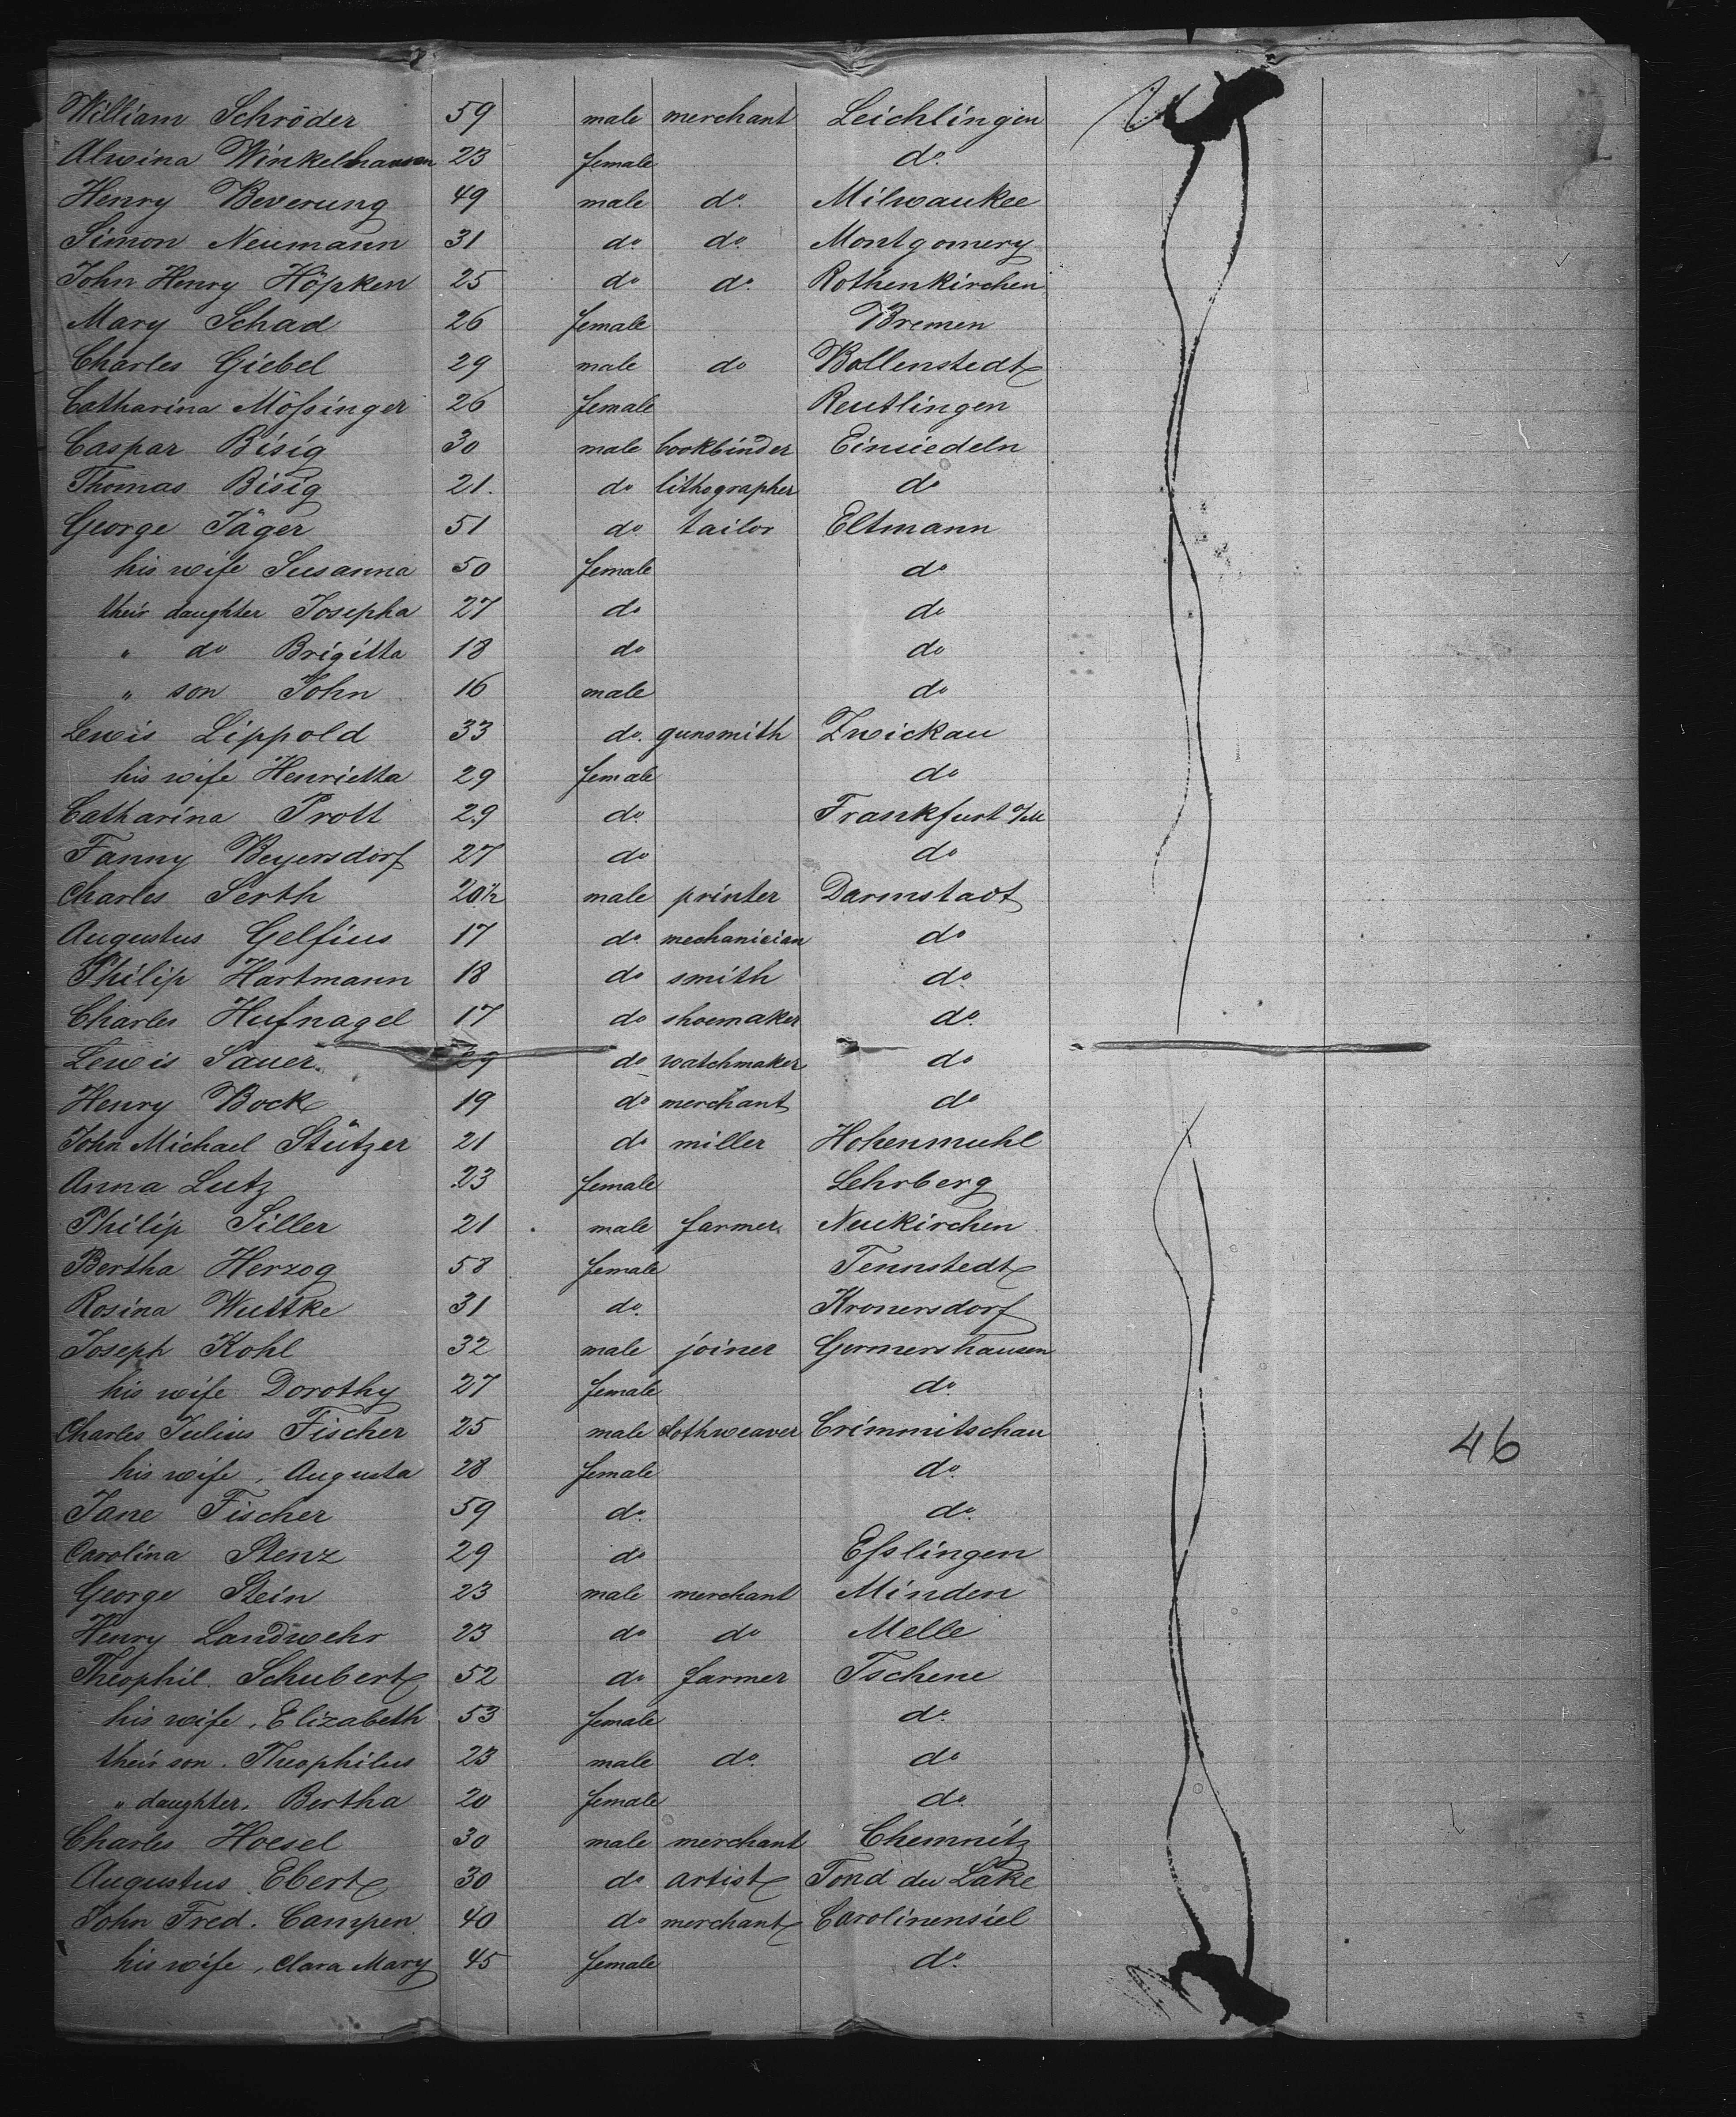 William Schröder 59 male merchant Leichlingen
Alwina Winkelshausen 23 female do
Henry Beverung 49 male do Milwaukee
Simon Neumann 31 do do Montgomery
John Henry Höpken 25 do do Rothenkirchen
Mary Schad 26 female Bremen
Charles Giebel 29 male do Ballenstedt
Catharina Mößinger 26 female Reutlingen
Caspar Bisig 30 male bookbinder Einsiedeln
Thomas Bisig 21. do lithographer do
George Jäger 51 do tailor Eltmann
his wife Susanna 50 female do
their daughter Josepha 27 do do
" do Brigitta 18 do do
" son John 16 male do
Lewis Lippold 33 do. gunsmith Zwickau
his wife Henrietta 29 female do
Catharina Prott 29 do. Frankfurt a/M
Fanny Beyersdorf 27 do do
Charles Serth 20½ male printer Darmstadt
Augustus Gelfius 17 do mechanician do
Philip Hartmann 18 do smith do
Charles Hufnagel 17 do shoemaker do
Lewis Sauer. do watchmaker do
Henry Bock 19 do merchant do
John Michael Stützer 21 do miller Hohenmuhl
Anna Lutz 23 female Lehrberg
Philip Siller 21 male farmer Neukirchen
Bertha Herzog 58 female Tennstedt
Rosina Wuttke 31 do. Kronersdorf
Joseph Kohl 32 male joiner Germershausen
his wife Dorothy 27 female do.
Charles Julius Fischer 25 male clothweaver Crimmitschau
his wife, Augusta 28 female do.
46
Jane Fischer 59 do. do.
Carolina Stenz 29 do Eßlingen
George Stein 23 male merchant Minden
Henry Landwehr 23 do do Melle
Theophil. Schubert 52 do farmer Tschene
his wife, Elizabeth 53 female do.
their son. Theophilus 23 male do. do
" daughter, Bertha 20 female do.
Charles Hoesel 30 male merchant Chemnitz
Augustus Ebert 30 do artist Fond du Lake
John Fred. Campen 40 do merchant Carolinensiel
his wife, Clara Mary 45 female do.